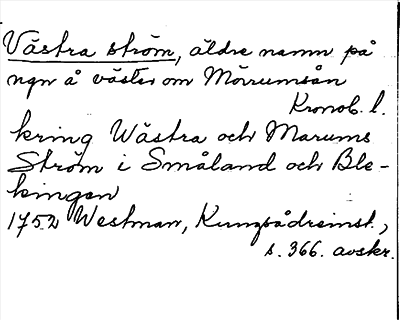 Västra ström, äldre namn på
ngn å väster om Mörrumsån
Kronob. l.
kring Wästra och Marums
Ström i Småland och Ble-
kingen
1752 Westman, Kungsådreinst.,
s. 366. avskr.